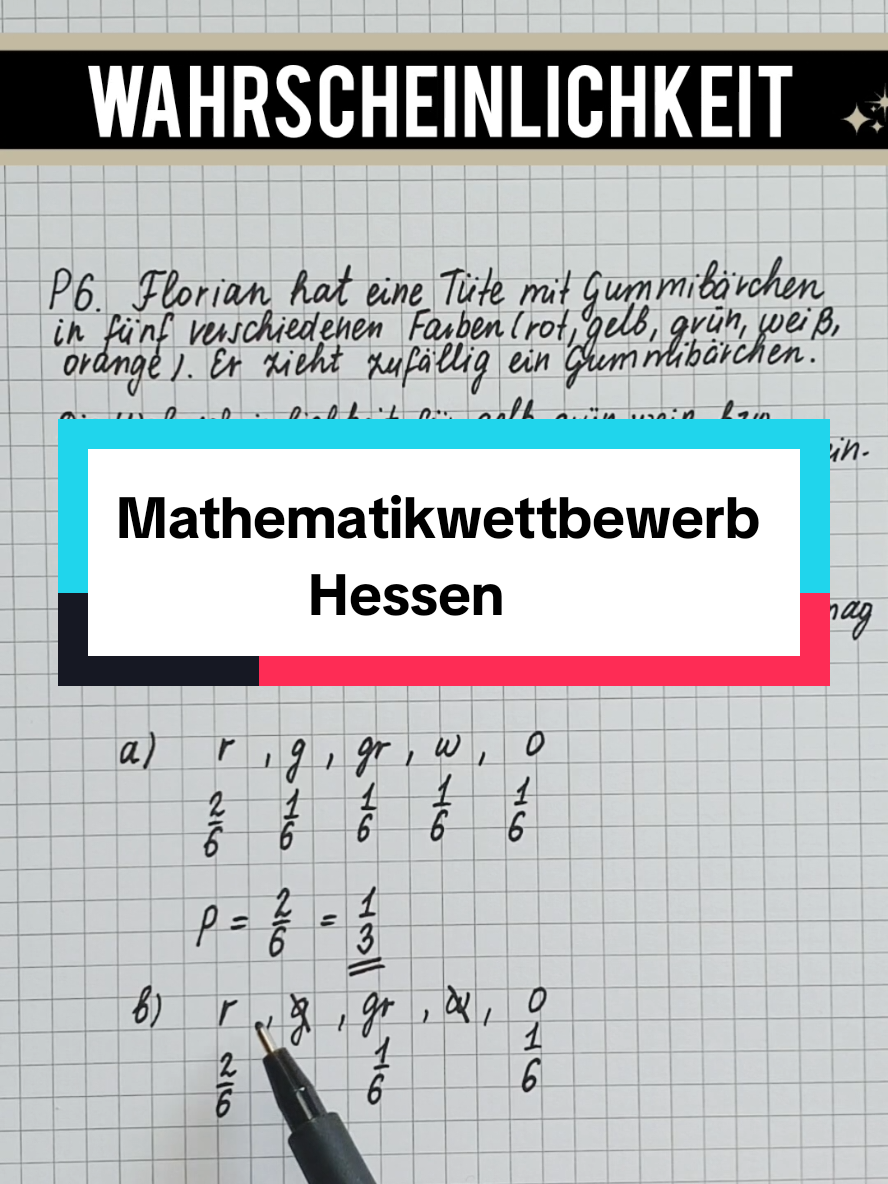 WAHRSCHEINLICHKEIT
P6. Florian hat eine Tüte mit Gummibärchen
in fünf verschiedenen Farben (rot, gelb, grün, weiß,
orange). Er zieht zufällig ein Gummibärchen.
Mathematikwettbewerb
Hessen
a) r, g, gr, w, o
2/6 1/6 1/6 1/6 1/6
P = 2/6 = 1/3
b) r, g, gr, w, o
2/6 1/6 1/6